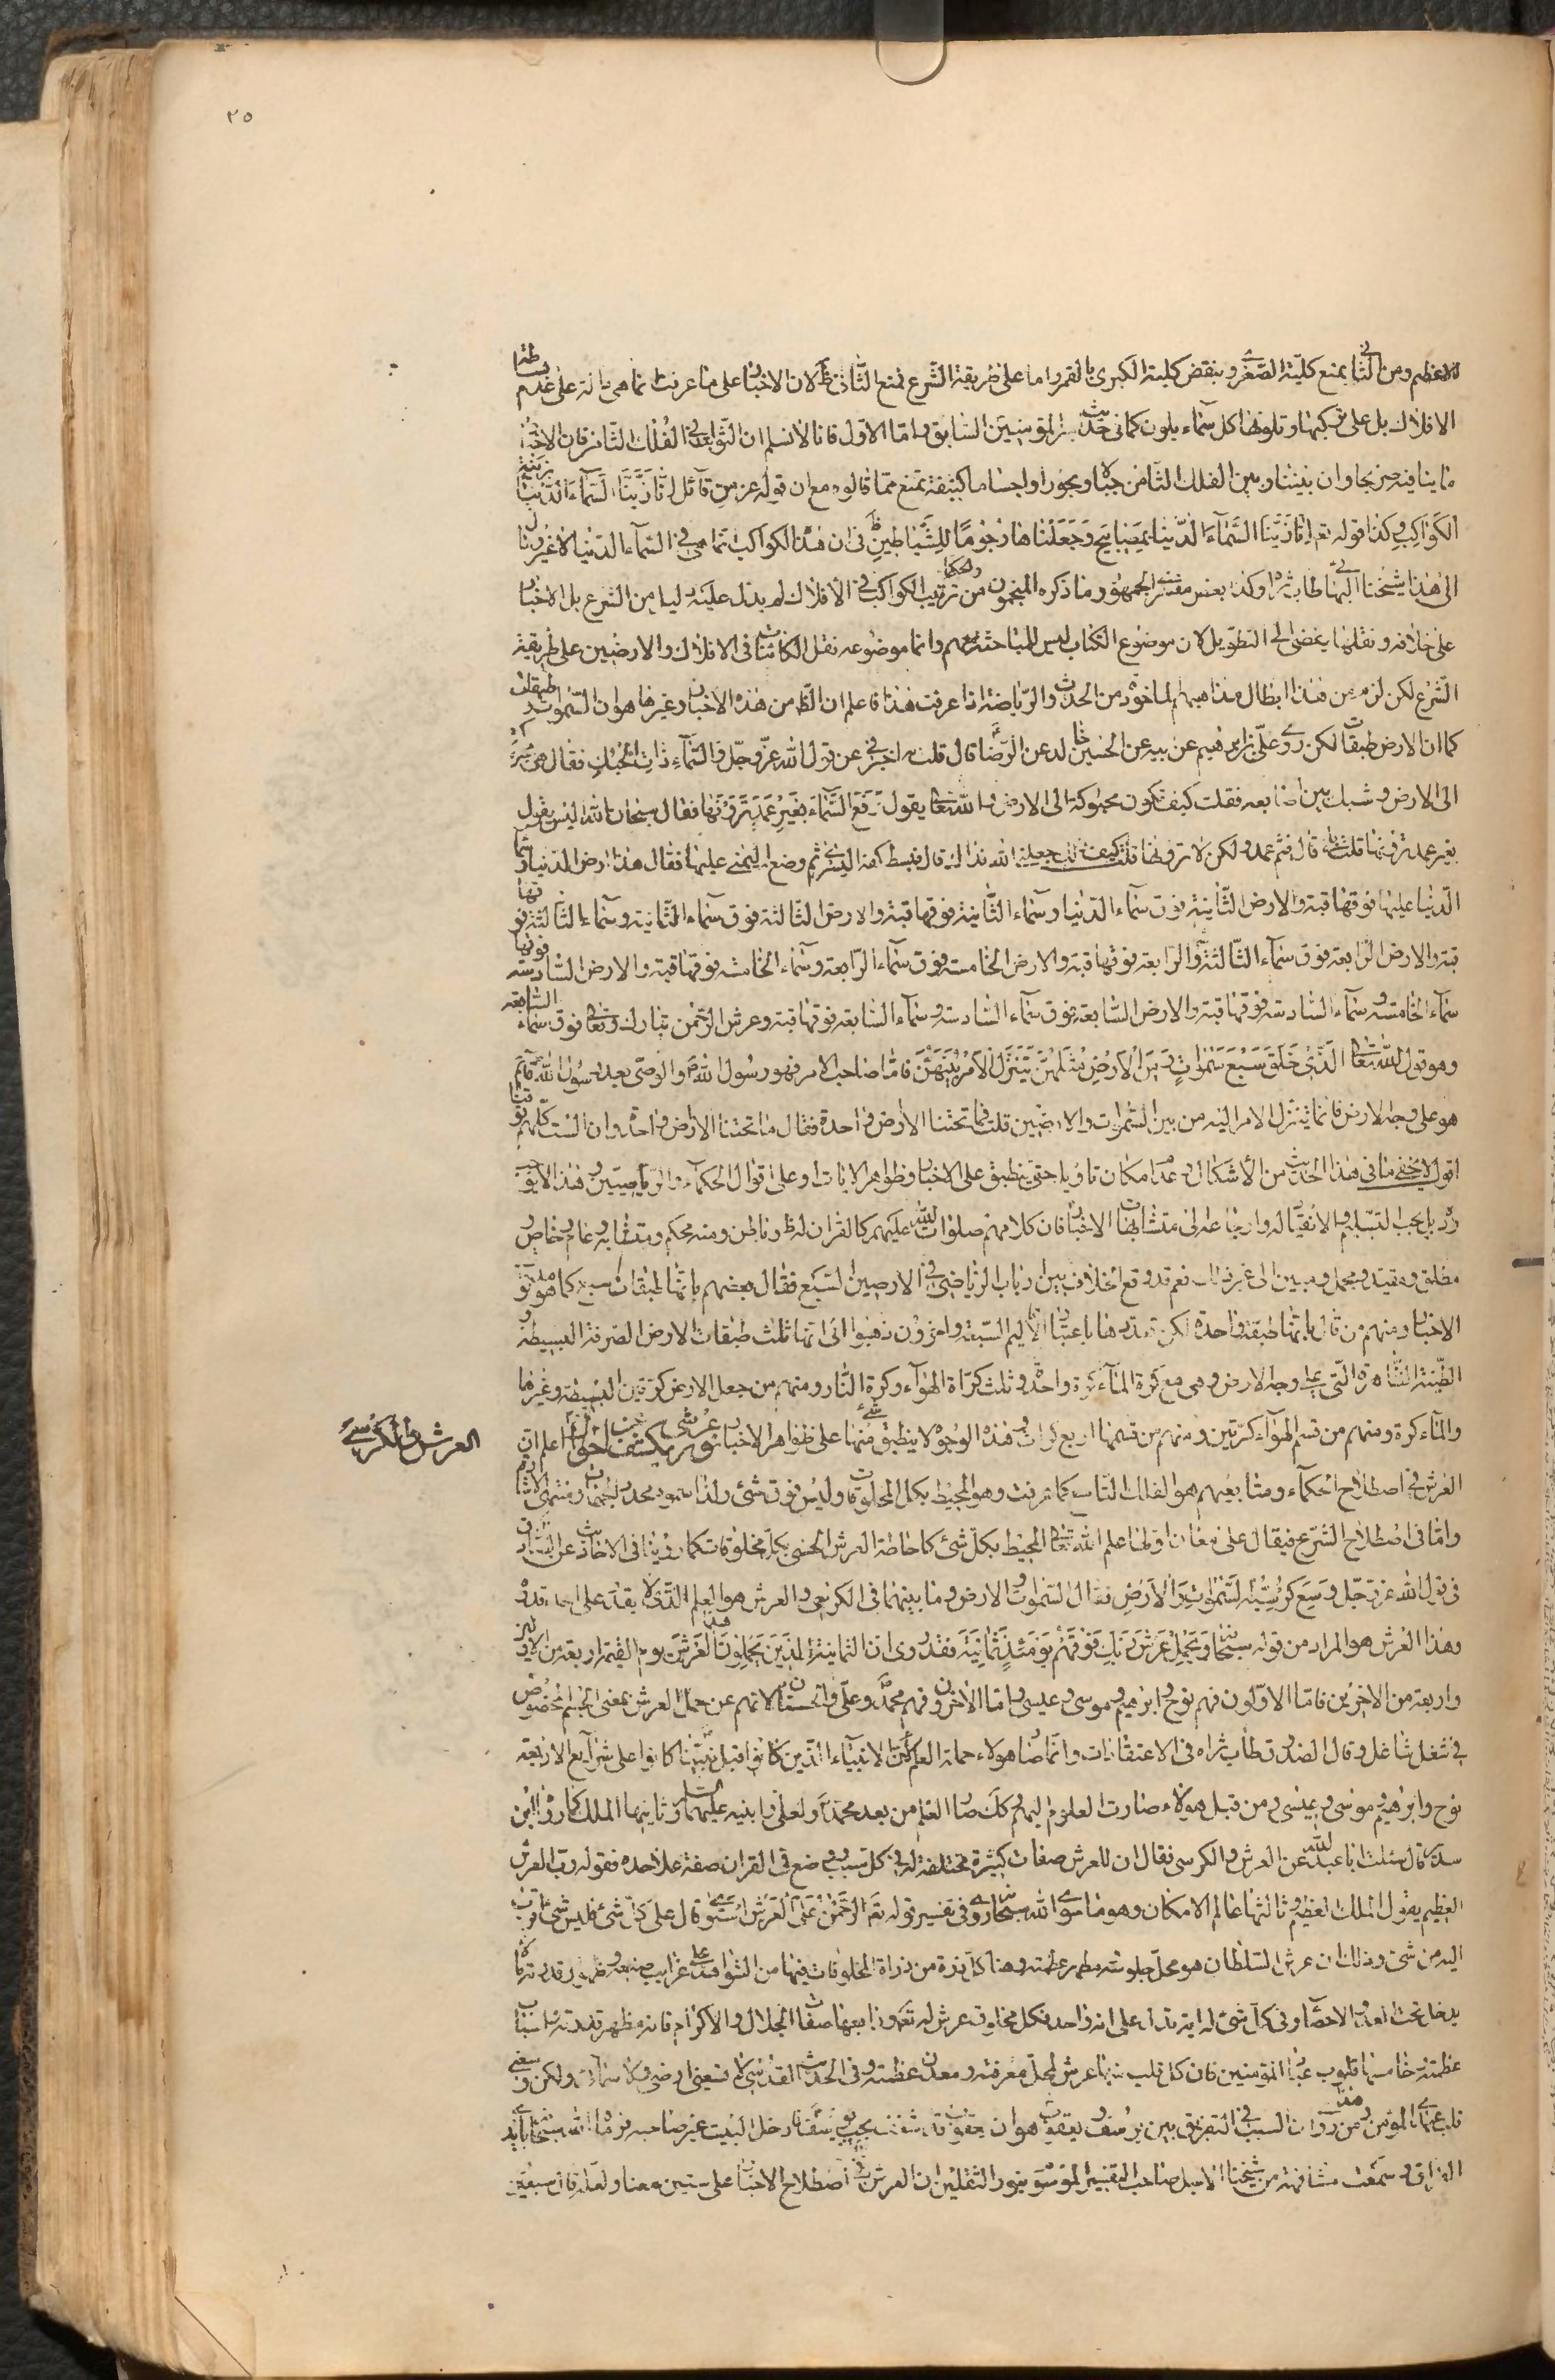 ٢٥
الاعظم ومن الثانى بمنع كلية الصغرى وبنقض كلية الكبرى بالقمر واما على طريقة الشرع فمنع الثانى ظ لان الاخبار على ما عرفت انما هى دالة على عدم بساطة
الافلاك بل على تركبها وتلونها كل سماء بلون كما فى حديث امير المؤمنين السابق واما الاول فانا لا نسلم ان الثوابت فى الفلك الثامن فان الاخبار
ما ينافيه صريحا وان بيننا وبين الفلك الثامن جبالا وبحورا واجساما كثيفة تمنع مما قالوه مع ان قوله عز من قائل انا زينا السماء الدنيا بزينة
الكواكب وكذا قوله تعم انا زينا السماء الدنيا بمصابيح وجعلناها رجوما للشياطين ظ فى ان هذه الكواكب انما هى فى السماء الدنيا لا غير وما
الى هذا شيخنا البهائى طاب ثراه وكذا بعض مفسرى الجمهور وما ذكره المنجمون والحكما من ترتيب الكواكب فى الافلاك لم يدل عليه دليل من الشرع بل الاخبار
على خلافه ونقلها يفضى الى التطويل لان موضوع الكتاب ليس للمباحثة معهم وانما موضوعه نقل الكائنات فى الافلاك والارضين على طريقة
الشرع لكن لزم من هذا ابطال مذاهبهم الماخوذة من الحدس والرياضة اذا عرفت هذا فاعلم ان الظ من هذه الاخبار وغيرها هو ان السموات طبقات
كما ان الارض طبقات لكن روى على بن ابرهيم عن ابيه عن الحسين بن خالد عن الرضا قال قلت له اخبرنى عن قول الله عز وجل والسماء ذات الحبك فقال هى محبوكة
الى الارض وشبك بين اصابعه فقلت كيف تكون محبوكة الى الارض والله تعالى يقول رفع السماء بغير عمد ترونها فقال سبحان الله اليس يقول
بغير عمد ترونها قلت بلى قال فثم عمد ولكن لا ترونها قلت كيف ذلك جعلنى الله فداك قال فبسط كفه اليسرى ثم وضع اليمنى عليها فقال هذه ارض الدنيا وسماء
الدنيا عليها فوقها قبة والارض الثانية فوق سماء الدنيا وسماء الثانية فوقها قبة والارض الثالثة فوق سماء الثانية وسماء الثالثة فوقها
قبة والارض الرابعة فوق سماء الثالثة وسماء الرابعة فوقها قبة والارض الخامسة فوق سماء الرابعة وسماء الخامسة فوقها قبة والارض السادسة فوق
سماء الخامسة وسماء السادسة فوقها قبة والارض السابعة فوق سماء السادسة وسماء السابعة فوقها قبة وعرش الرحمن تبارك وتعالى فوق سماء السابعة
وهو قول الله تعالى الذى خلق سبع سموات ومن الارض مثلهن يتنزل الامر بينهن فاما صاحب الامر فهو رسول الله والوصى بعد رسول الله قائم
هو على وجه الارض فانما يتنزل الامر اليه من بين السموات والارضين قلت فما تحتنا الا ارض واحدة فقال ما تحتنا الا ارض واحدة وان الست لهن فوقنا
اقول لا يخفى ما فى هذا الحديث من الاشكال وعدم امكان تاويله حتى ينطبق على الاخبار وظواهر الايات او على اقوال الحكماء والرياضيين وهذا لا يوجب
رده بل يجب التسليم والانقياد له وارجاعه الى متشابهات الاخبار فان كلامهم صلوات الله عليهم كالقران له ظهر وباطن ومنه محكم ومتشابه وعام وخاص و
مطلق ومقيد ومجمل ومبين الى غير ذلك نعم قد وقع الخلاف بين ارباب الرياضى فى الارضين السبع فقال بعضهم بانها طبقات سبع كما هو
الاخبار ومنهم من قال بانها طبقة واحدة لكن تعددها باعتبار الاقاليم السبعة واخرون ذهبوا الى انها ثلث طبقات الارض الصرفة البسيطة و
الطينة الظاهرة التى على وجه الارض وهى مع كرة الماء كرة واحدة وثلث كراة الهواء وكرة النار ومنهم من جعل الارض كرتين البسيطة وغيرها
والماء كرة ومنهم من قسم الهواء كرتين ومنهم من قسمها اربع كرات وهذه الوجوه لا ينطبق شىء منها على ظواهر الاخبار نور عرشى يكشف عن احوال اعلم ان
العرش والكرسى
العرش فى اصطلاح الحكماء ومتابعيهم هو الفلك التاسع كما عرفت وهو المحيط بكل المخلوقات وليس فوقه شىء ولذا سموه محدد الجهات ومنتهى الاشارة
واما فى اصطلاح الشرع فيقال على معان اولها علم الله تعالى المحيط بكل شىء كاحاطة العرش الحسى بكل مخلوقاته كما روينا فى الاخاديث عن الصادق
فى قول الله عز وجل وسع كرسيه السموات والارض فقال السموات والارض وما بينهما فى الكرسى والعرش هو العلم الذى لا يقدر على احد قدره
وهذا العرش هو المراد من قوله سبحانه ويحمل عرش ربك فوقهم يومئذ ثمانية فقد روى ان الثمانية الذين يحملون هذا العرش يوم القيمة اربعة من الاولين
واربعة من الاخرين فاما الاولون فهم نوح وابرهيم وموسى وعيسى واما الاخرون فهم محمد وعلى والحسنان لانهم عن حمل العرش بمعنى الجسم المخصوص
فى شغل شاغل وقال الصدوق طاب ثراه فى الاعتقادات وانما صار هؤلاء حملة العلم لان الانبياء الذين كانوا قبل نبينا كانوا على شرايع الاربعة
نوح وابرهيم وموسى وعيسى ومن قبل هؤلاء صارت العلوم اليهم وكك صار العلم من بعد محمد وعلى وابنيه عليهم السلام وثانيها الملك كما رواه ابن
سدير قال سئلت ابا عبد الله عن العرش والكرسى فقال ان للعرش صفات كثيرة مختلفة له فى كل سبب وضع فى القران صفة على حدة فقوله رب العرش
العظيم يقول الملك العظيم وثالثها عالم الامكان وهو ما سوى الله سبحانه روى فى تفسير قوله تعم الرحمن على العرش استوى قال على كل شىء فليس شىء اقرب
اليه من شىء وذلك ان عرش السلطان هو محل جلوسه مظهر عظمته وهنا كل ذرة من ذراة المخلوقات فيها من الشواهد على غرايب صنعه وظهور قدرته ما لا
يدخل تحت العد والاحصاء وفى كل شىء له اية تدل على انه واحد فكل مخلوق عرش له تعم ورابعها صفات الجلال والاكرام فانه مظهر قدرته
عظمته وخامسها قلوب عباد المؤمنين فان كل قلب منها عرش لمحل معرفته ومعدن عظمته وفى الحديث القدسى لم تسعنى ارضى ولا سمائى ولكن وسعنى
قلب عبدى المؤمن ومن هذا روى ان السبب فى التفريق بين يوسف ويعقوب هو ان يعقوب قد شغف بحب يوسف فادخل البيت غير صاحبه فرماه الله سبحانه
الفراق وسمعت مشافهة من شيخنا الاجل صاحب التفسير الموسوم بنور الثقلين ان العرش فى اصطلاح الاخبار على ستين معنا ولعله قال سبعين